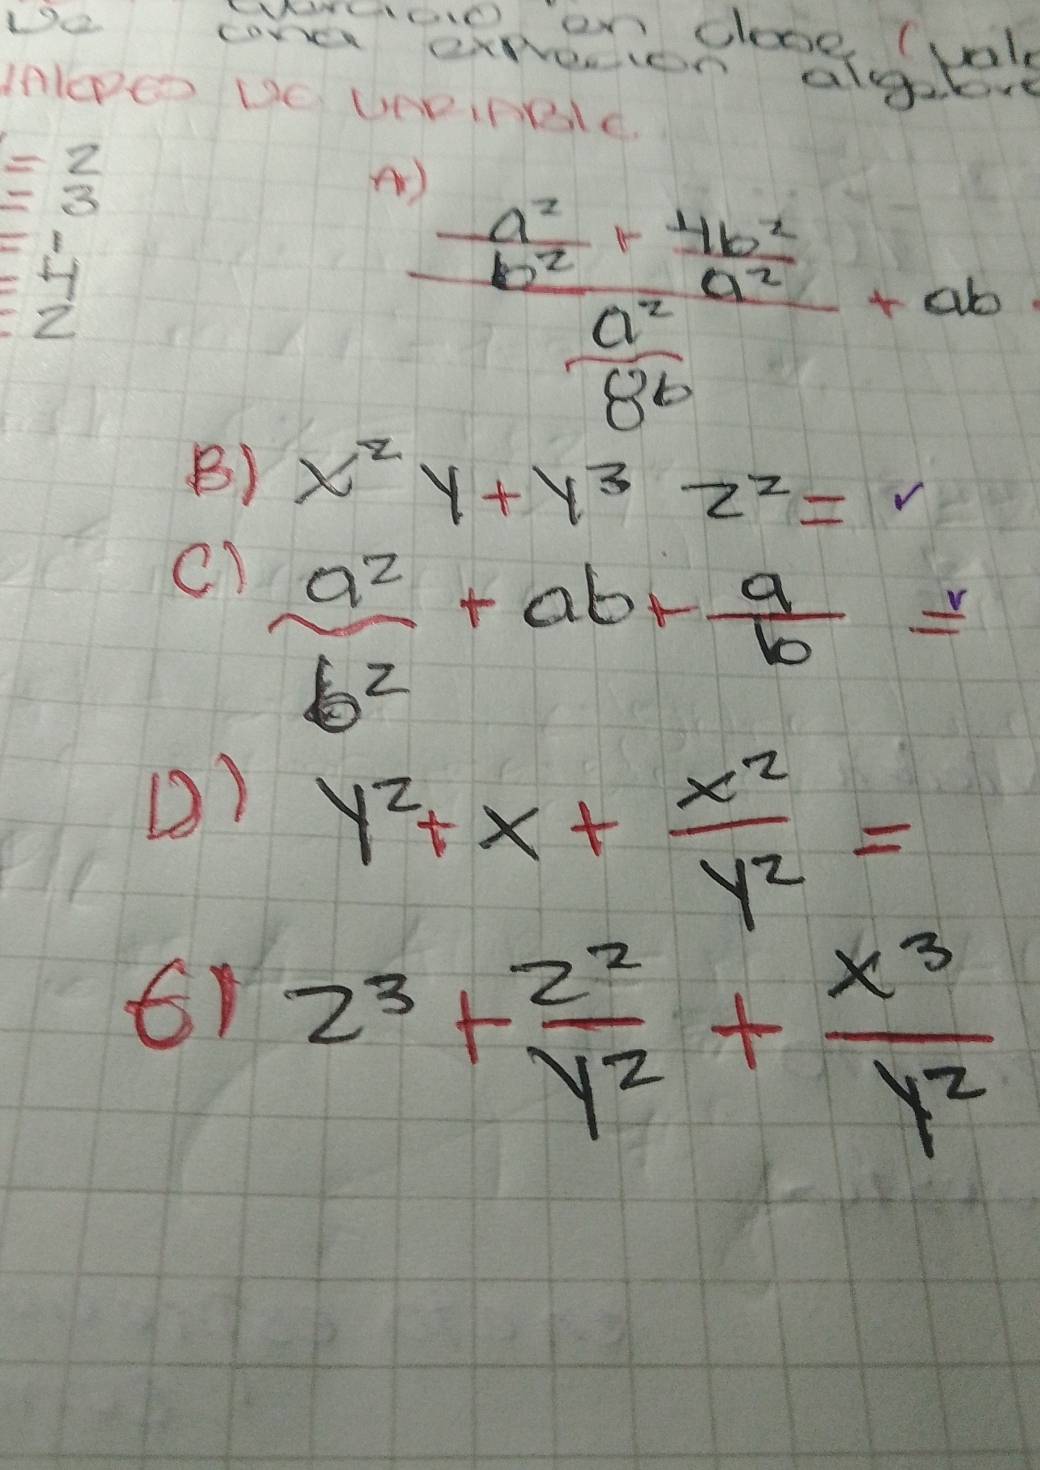 De en clase (
cada exprecion algebr
VALORES DE VARIABLE
= 2
= 3
= 1
= 4
= 2
A) a²/b² + 4b²/a² / a²/8b + ab
B) x² y + y³ z² =
C) a²/b² + ab + a/b =
D) y² + x + x²/y² =
E) z³ + z²/y² + x³/y²